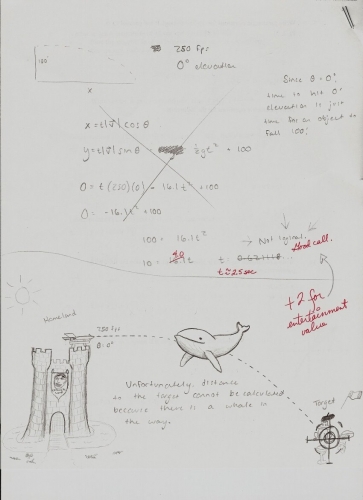 250 fps
0° elevation
100
x
Since θ = 0°,
time to hit 0'
elevation is just
time for an object to
fall 100'.
x = t|v| cos θ
y = t|v| sin θ - ½gt² + 100
0 = t(250)(0) - 16.1t² + 100
0 = -16.1t² + 100
100 = 16.1t²
→ Not logical.
Good call.
10 = 4.0 t
t ≈ 2.5 sec
+2 for
entertainment
value
Homeland
250 fps
θ = 0°
Unfortunately, distance
to the target cannot be calculated
because there is a whale in
the way.
Target